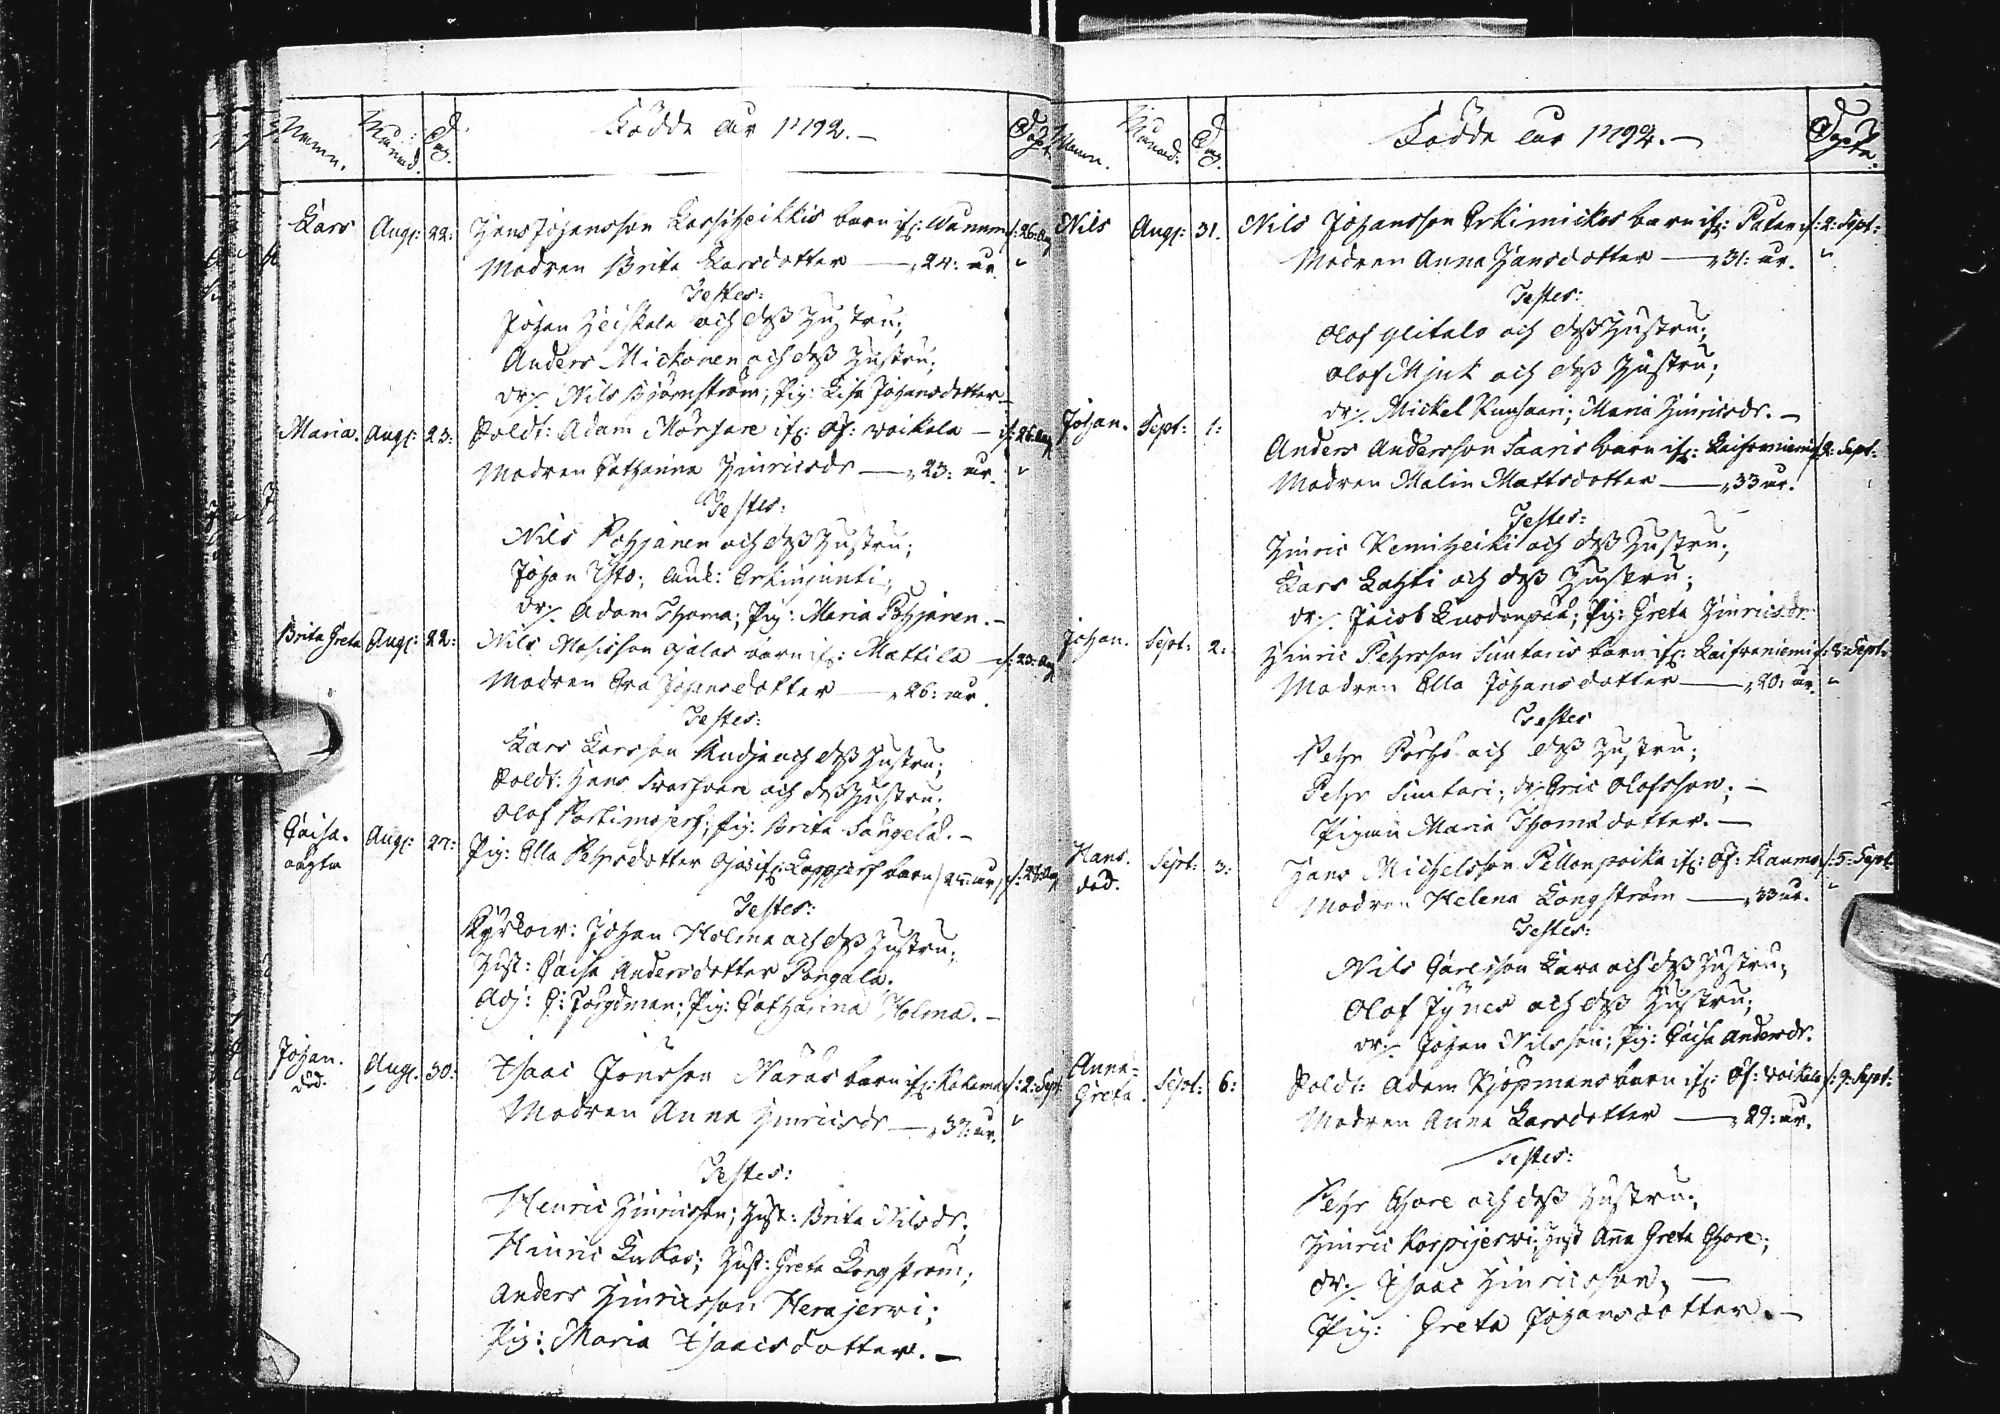 Namn. Månad. Dag. Födde åhr 1792. — Döpt
Lars Aug: 22: Hans Johansson barn if: d: 26: Aug
Modren Brita Larsdotter — „ 24: år. "
Testes:
Johan Heiskala och dess Hustru;
Anders Mickonen och dess Hustru;
dr: Nils Björnström; Pig: Lisa Johansdotter —
Maria. Aug: 23: Soldt: Adam Mörhare if: Öf: Woikala — d: 26 Aug
Modren Catharina Hinricsdr — „ 23: år. "
Testes:
Nils Pohjanen och dess Hustru;
Johan Änk: Erkinjunti;
dr: Adam Thoma; Pig: Maria Pohjanen. —
Brita Greta Aug: 22: Nils barn if: Mattila — d: 23: Aug
Modren Eva Johansdotter — „ 26: år.
Testes:
Lars Larsson och dess Hustru;
Soldt: Hans och dess Hustru;
Olof Portimojerf; Pig: Brita —
Caisa. oägta Aug: 27: Pig: Ella Pehrsdotter if: barn / 25: år / d: 28: Aug
Testes:
Kyrkow: Johan Holma och dess Hustru;
Hust: Caisa Andersdotter
Adj: Pig: Catharina Holma. —
Johan. död. Aug. 30: Isaac Jönsson Naras barn if: d: 2: Sept
Modren Anna Hinricsdr — „ 37: år. "
Testes:
Henric Hinricsson; Hust: Brita Nilsdr;
Hinric Lukas; Hust: Greta Longström;
Anders Hinricsson Herajerwi;
Pig: Maria Isaacsdotter. —
Namn. Månad. Dag. Födde åhr 1792. — Döpte.
Nils Aug: 31. Nils Johansson Erkimickos barn if: d: 2: Sept:
Modren Anna Hansdotter — „ 31: år. "
Testes:
Olof Ylitalo och dess Hustru;
Olof Mjuk och dess Hustru;
dr: Mickel Kuusaari; Maria Hinricsdr. —
Johan. Sept: 1: Anders Andersson Saaris barn if: d: 2: Sept:
Modren Malin Mattsdotter — „ 33 år.
Testes:
Hinric Kemiheiki och dess Hustru;
Lars Lahti och dess Hustru;
dr: Jacob Luodonpää; Pig: Greta Hinricsdr
Johan. Sept: 2: Hinric Pehrsson Suutaris barn if: d: 3: Sept:
Modren Ella Johansdotter — „ 20: år. "
Testes
Pehr och dess Hustru;
Pehr Suutari; dr: Eric Olofsson; —
Pigan Maria Thomadotter. —
Hans. död. Sept: 3: Hans Michelsson Pellonpoika if: Öf: Kaumo d: 5: Sept:
Modren Helena Longström — „ 33 år. "
Testes:
Nils Carlsson Lara och dess Hustru;
Olof och dess Hustru;
dr: Johan Nilsson; Pig: Caisa Andersdr.
Anna-Greta Sept: 6: Soldt: Adam Kjöpmans barn if: Öf: Woikala d: 9: Sept:
Modren Anna Larsdotter — „ 29: år.
Testes:
Pehr och dess Hustru;
Hinric Korpijerwi; Hust Anna Greta
dr: Isaac Hinricsson, —
Pig: Greta Johansdotter. —